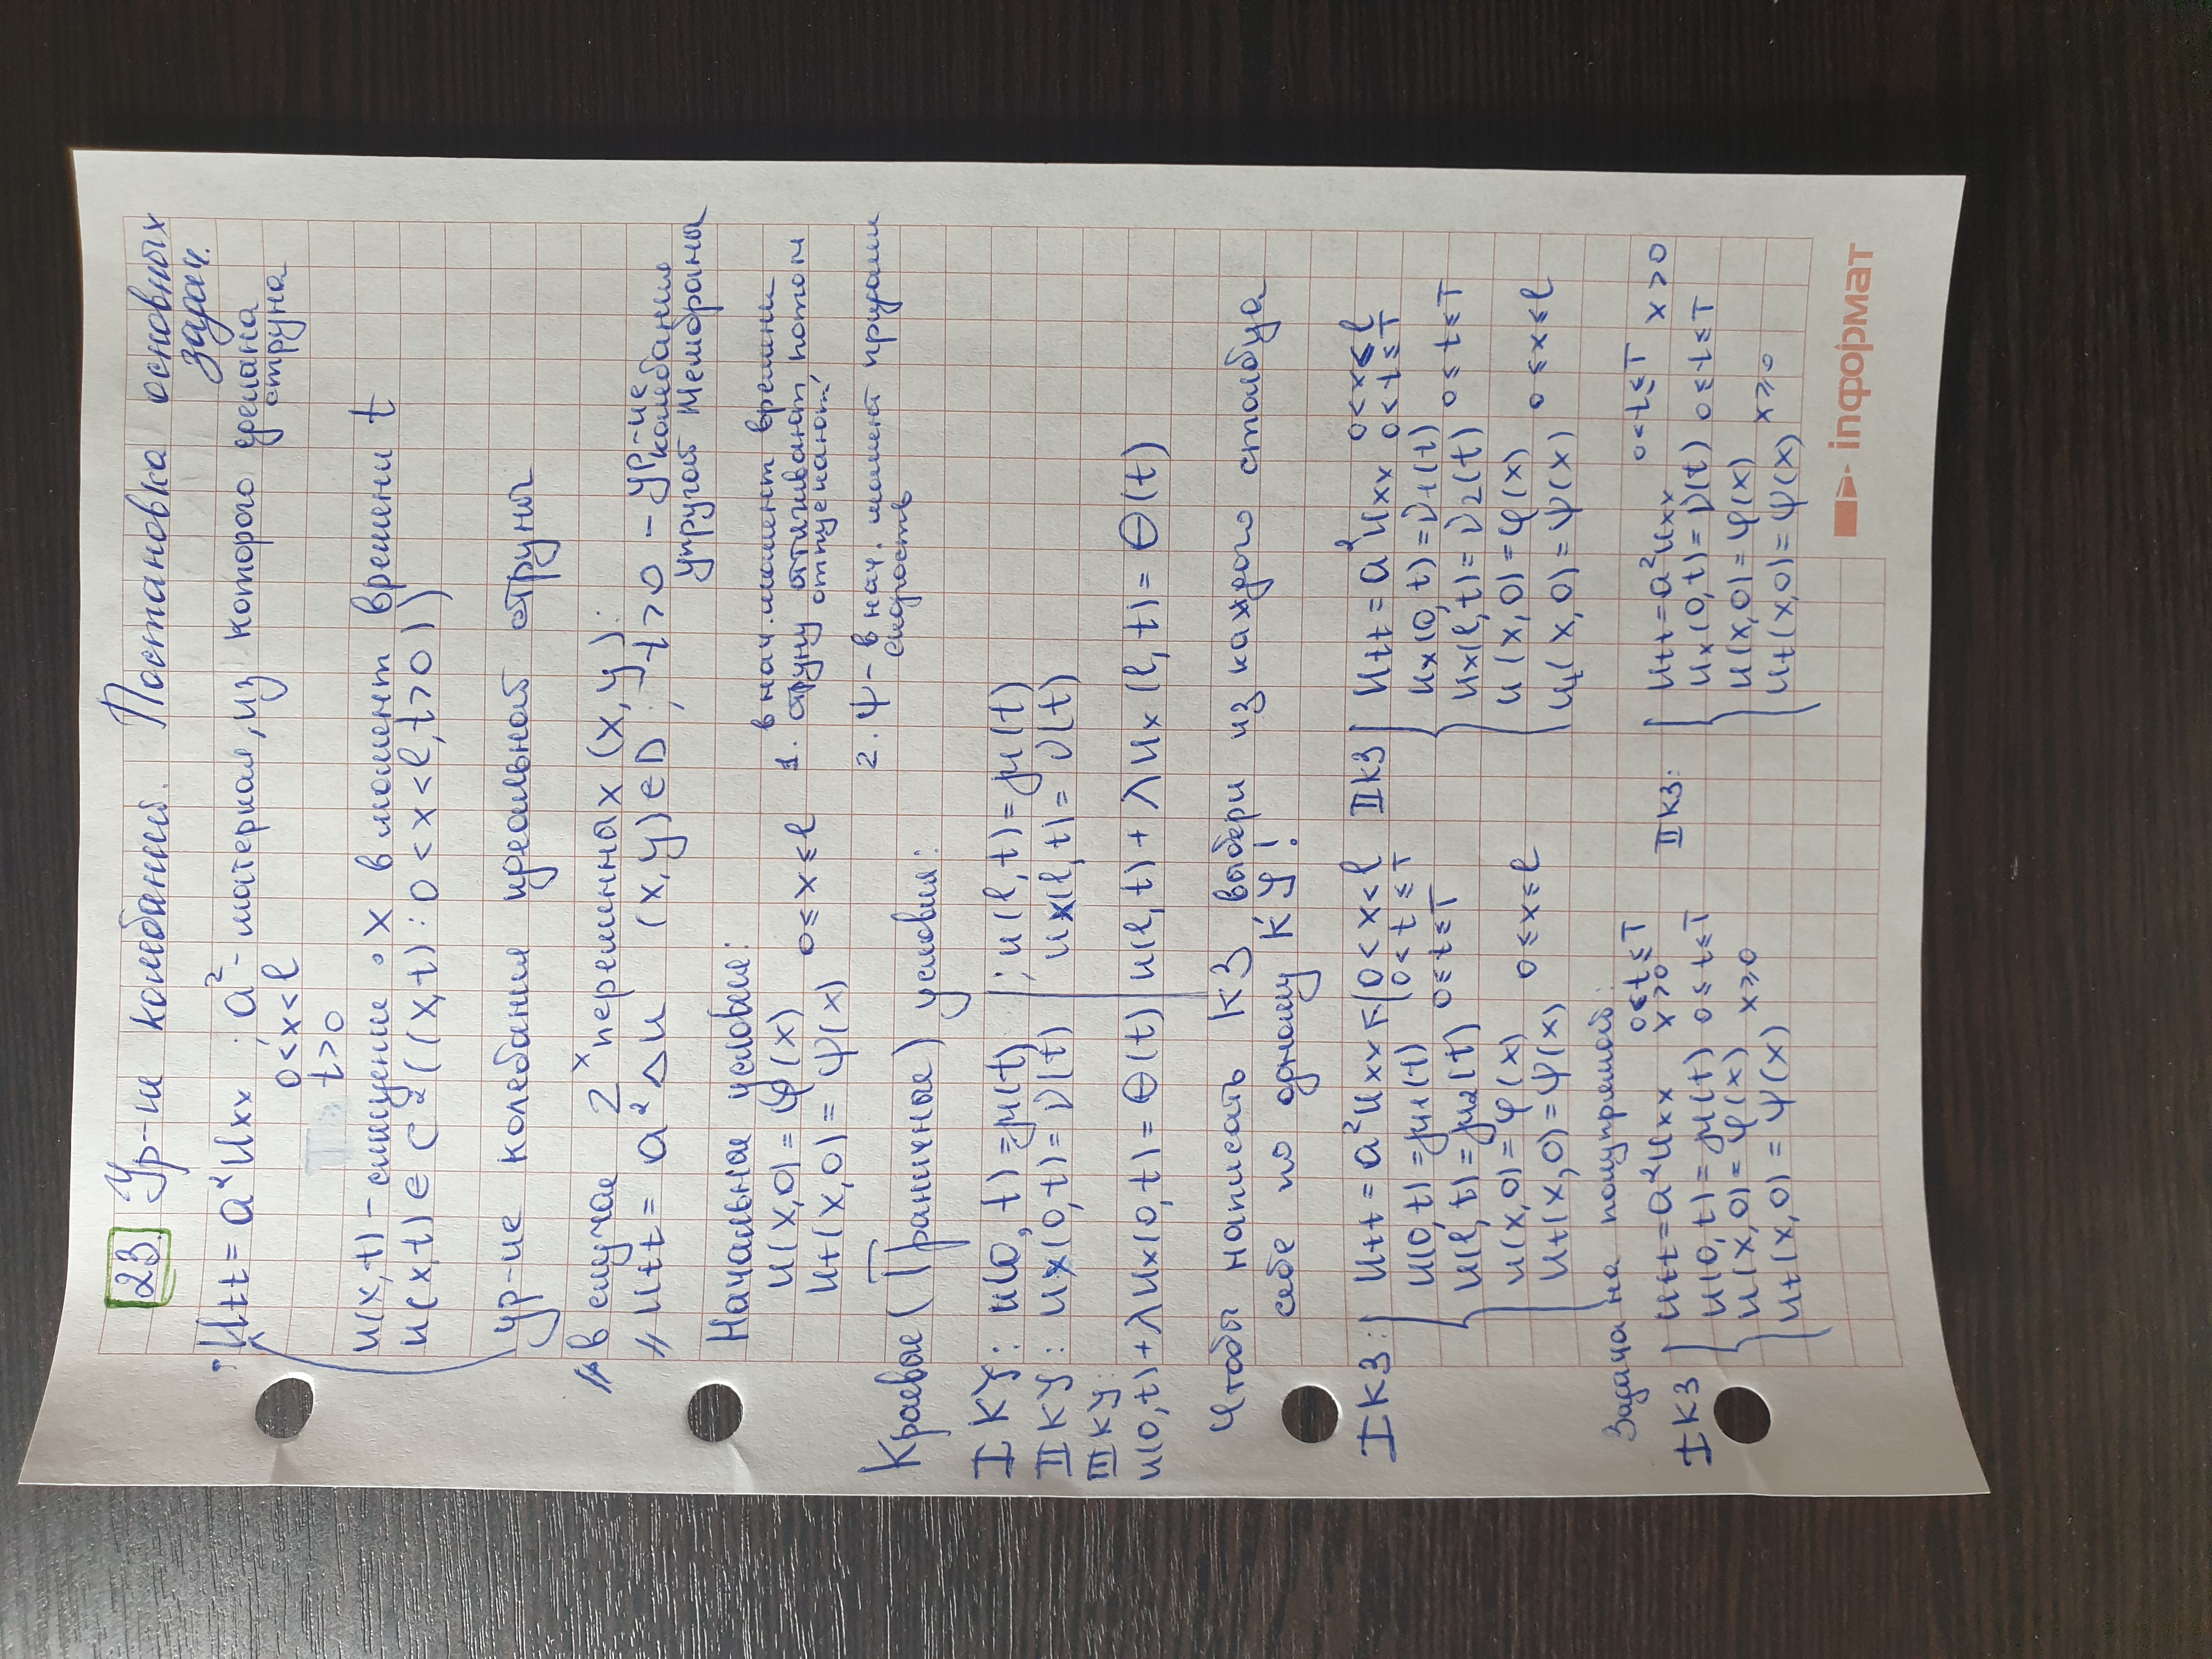 23. Ур-ие колебаний. Постановка основных задач.
Utt = a²Uxx ; a² - материал, из которого сделана струна
0 < x < l
t > 0
u(x,t) - смещение • x в момент времени t
u(x,t) ∈ C² ((x,t) : 0 < x < l, t > 0)
ур-ие колебания идеальной струны
// в случае 2ˣ переменных (x,y):
// utt = a²Δu (x,y) ∈ D, t > 0 - ур-ие колебания упругой мембраны
Начальные условия:
u(x,0) = φ(x)
ut(x,0) = ψ(x) 0 ≤ x ≤ l
1. в нач. момент времени струну оттягивают, потом отпускают
2. ψ - в нач. момент придали скорость
Краевые (Граничные) условия:
I КУ: u(0,t) = μ(t) ; u(l,t) = μ(t)
II КУ: ux(0,t) = ν(t) ux(l,t) = ν(t)
III КУ:
u(0,t) + λux(0,t) = θ(t) u(l,t) + λux(l,t) = θ(t)
Чтобы написать КЗ выбери из каждого столбца
себе по одному КУ!
I КЗ: utt = a²uxx 0 < x < l
0 < t ≤ T
u(0,t) = μ1(t)
u(l,t) = μ2(t) 0 ≤ t ≤ T
u(x,0) = φ(x)
ut(x,0) = ψ(x) 0 ≤ x ≤ l
II КЗ utt = a²uxx 0 < x < l
0 < t ≤ T
ux(0,t) = ν1(t)
ux(l,t) = ν2(t) 0 ≤ t ≤ T
u(x,0) = φ(x)
ut(x,0) = ψ(x) 0 ≤ x ≤ l
Задача на полупрямой:
I КЗ utt = a²uxx 0 < t ≤ T
x > 0
u(0,t) = μ(t) 0 ≤ t ≤ T
u(x,0) = φ(x)
ut(x,0) = ψ(x) x ≥ 0
II КЗ: utt = a²uxx 0 < t ≤ T x > 0
ux(0,t) = ν(t) 0 ≤ t ≤ T
u(x,0) = φ(x)
ut(x,0) = ψ(x) x ≥ 0
inформат